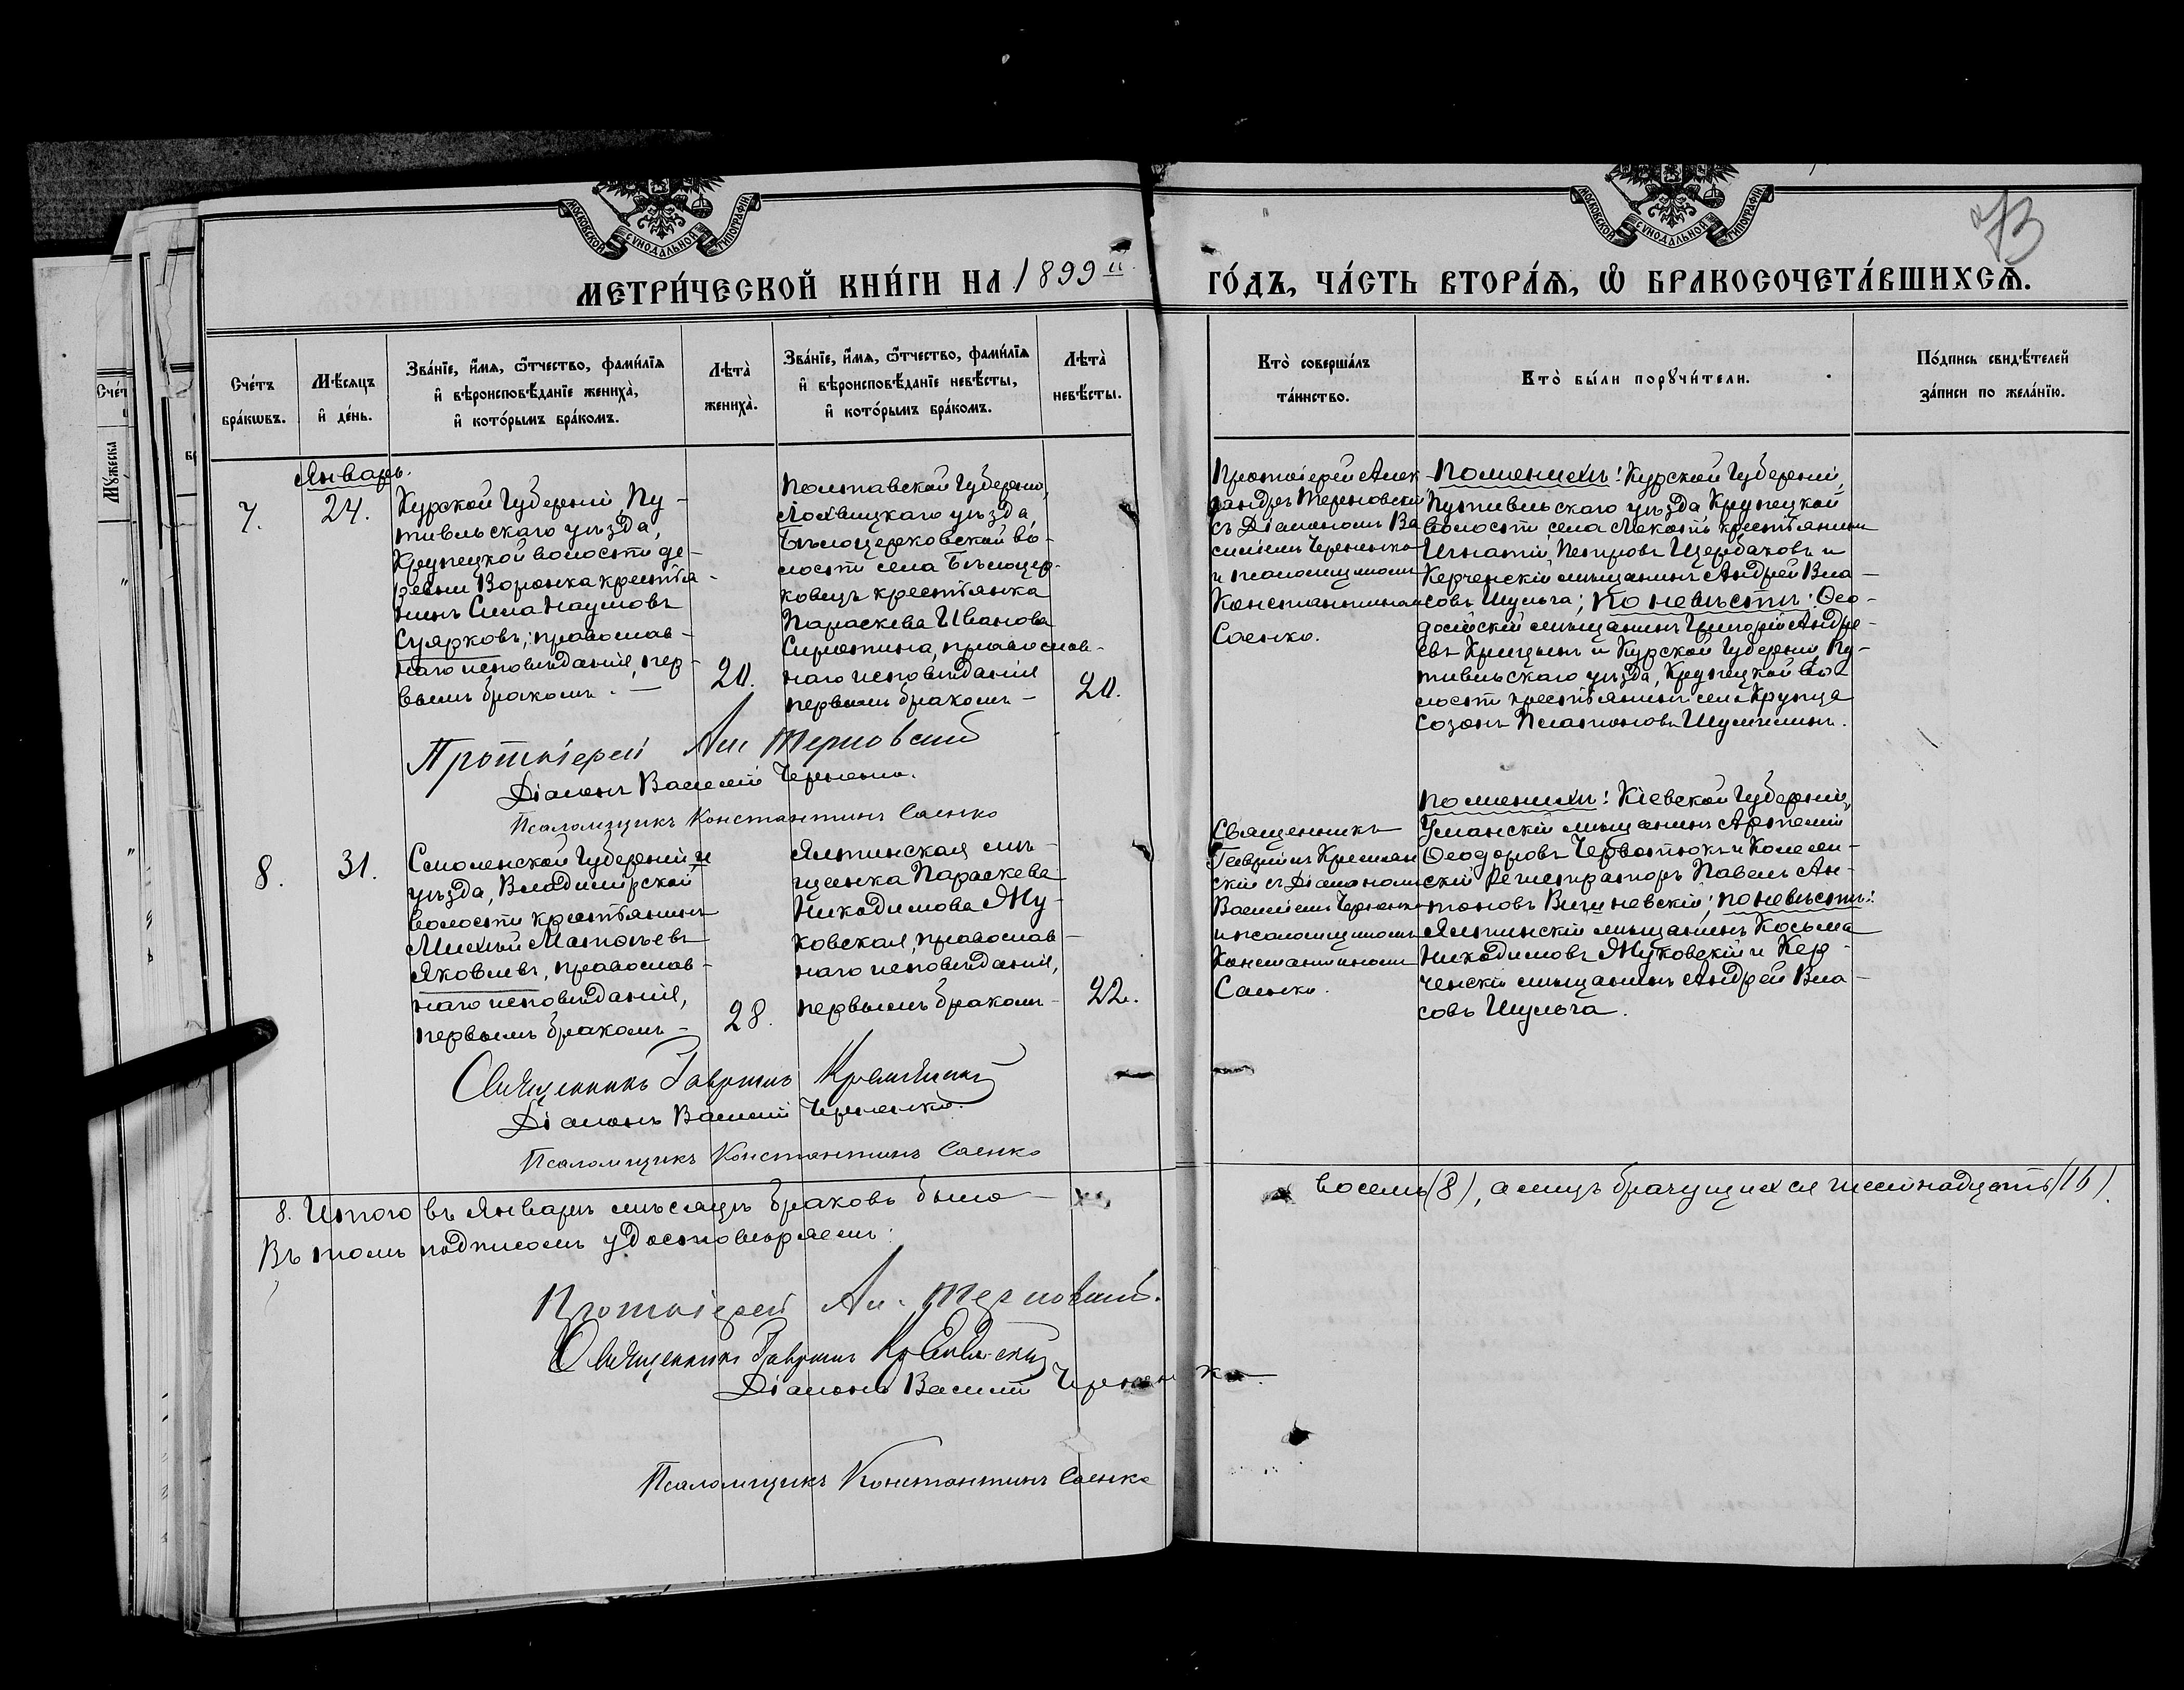 МОСКОВСКОЙ СѴНОДАЛЬНОЙ ТИПОГРАФІИ
МОСКОВСКОЙ СѴНОДАЛЬНОЙ ТИПОГРАФІИ
73
МЕТРИ́ЧЕСКОЙ КНИ́ГИ НА 1899 й
ГО́ДЪ, ЧА́СТЬ ВТОРА́Я, Ѡ БРАКОСОЧЕТА́ВШИХСЯ.
Счетъ
бра́кѡвъ.
Мѣ́сяцъ
и҆ де́нь.
Зва́нїе, и҆́мя, ѻ҆́тчество, фами́лїя
и҆ вѣроисповѣ́данїе жениха̀,
и҆ кото́рымъ бра́комъ.
Лѣта̀
жениха̀.
Зва́нїе, и҆́мя, ѻ҆́тчество, фами́лїя
и҆ вѣроисповѣ́данїе невѣ́сты,
и҆ кото́рымъ бра́комъ.
Лѣта̀
невѣ́сты.
Кто̀ соверша́лъ
та́инство.
Кто̀ бы́ли порꙋчи́тели.
По́дпись свидѣ́телей
за́писи по жела́нїю.
Январь.
7.
24.
Курской Губерніи, Пу-
тивльскаго уѣзда,
Крупецкой волости де-
ревни Воронка крестья-
нинъ Сила Наумовъ
Сулрковъ, православ-
наго исповѣданія, пер-
вымъ бракомъ. —
20.
Полтавской Губерніи,
Лохвицкаго уѣзда,
Бѣлоцерковской во-
лости села Бѣлоцер-
ковецъ крестьянка
Параскева Иванова
Сиротина, православ-
наго исповѣданія
первымъ бракомъ —
20.
Протоіерей Алек-
сандръ Терновскій
съ Діакономъ Ва
силіемъ Черненко
и псаломщикомъ
Константиномъ
Саенко.
По женихѣ: Курской Губерніи,
Путивльскаго уѣзда Крупецкой
волости села крестьянинъ
Игнатій Петровъ Щербаковъ и
Керченскій мѣщанинъ Андрей Вла-
совъ Шульга; по невѣстѣ: Ѳео-
досійскій мѣщанинъ Григорій Андре-
евъ и Курской Губерніи, Пу-
тивльскаго уѣзда, Крупецкой во-
лости крестьянинъ села Крупца
Созонъ Платоновъ
Протоіерей Ал. Терновскій
Діаконъ Василій Черненко.
Псаломщикъ Константинъ Саенко
8.
31.
Смоленской Губерніи и
уѣзда, Владимірской
волости крестьянинъ
Михаилъ
Яковлевъ, православ-
наго исповѣданія,
первымъ бракомъ —
28.
Ялтинская мѣ-
щанка Параскева
Никодимова Жу-
ковская, православ-
наго исповѣданія,
первымъ бракомъ —
22.
Священникъ
Гавріилъ
скій съ Діакономъ
Василіемъ Черненко
и псаломщикомъ
Константиномъ
Саенко.
По женихѣ: Кіевской Губерніи,
Уманскій мѣщанинъ Артемій
Ѳеодоровъ и Коллеж-
скій Регистраторъ Павелъ Ан-
тоновъ Вишневскій; по невѣстѣ:
Ялтинскій мѣщанинъ Косьма
Никодимовъ Жуковскій и Кер-
ченскій мѣщанинъ Андрей Вла-
совъ Шульга.
Священникъ Гавріилъ
Діаконъ Василій Черненко.
Псаломщикъ Константинъ Саенко
8. Итого въ Январѣ мѣсяцѣ браковъ было —
восемь (8), а лицъ брачущихся шестнадцать (16).
Въ томъ подписомъ удостовѣряемъ:
Протоіерей Ал. Терновскій.
Священникъ Гавріилъ
Діаконъ Василій Черненко.
Псаломщикъ Константинъ Саенко